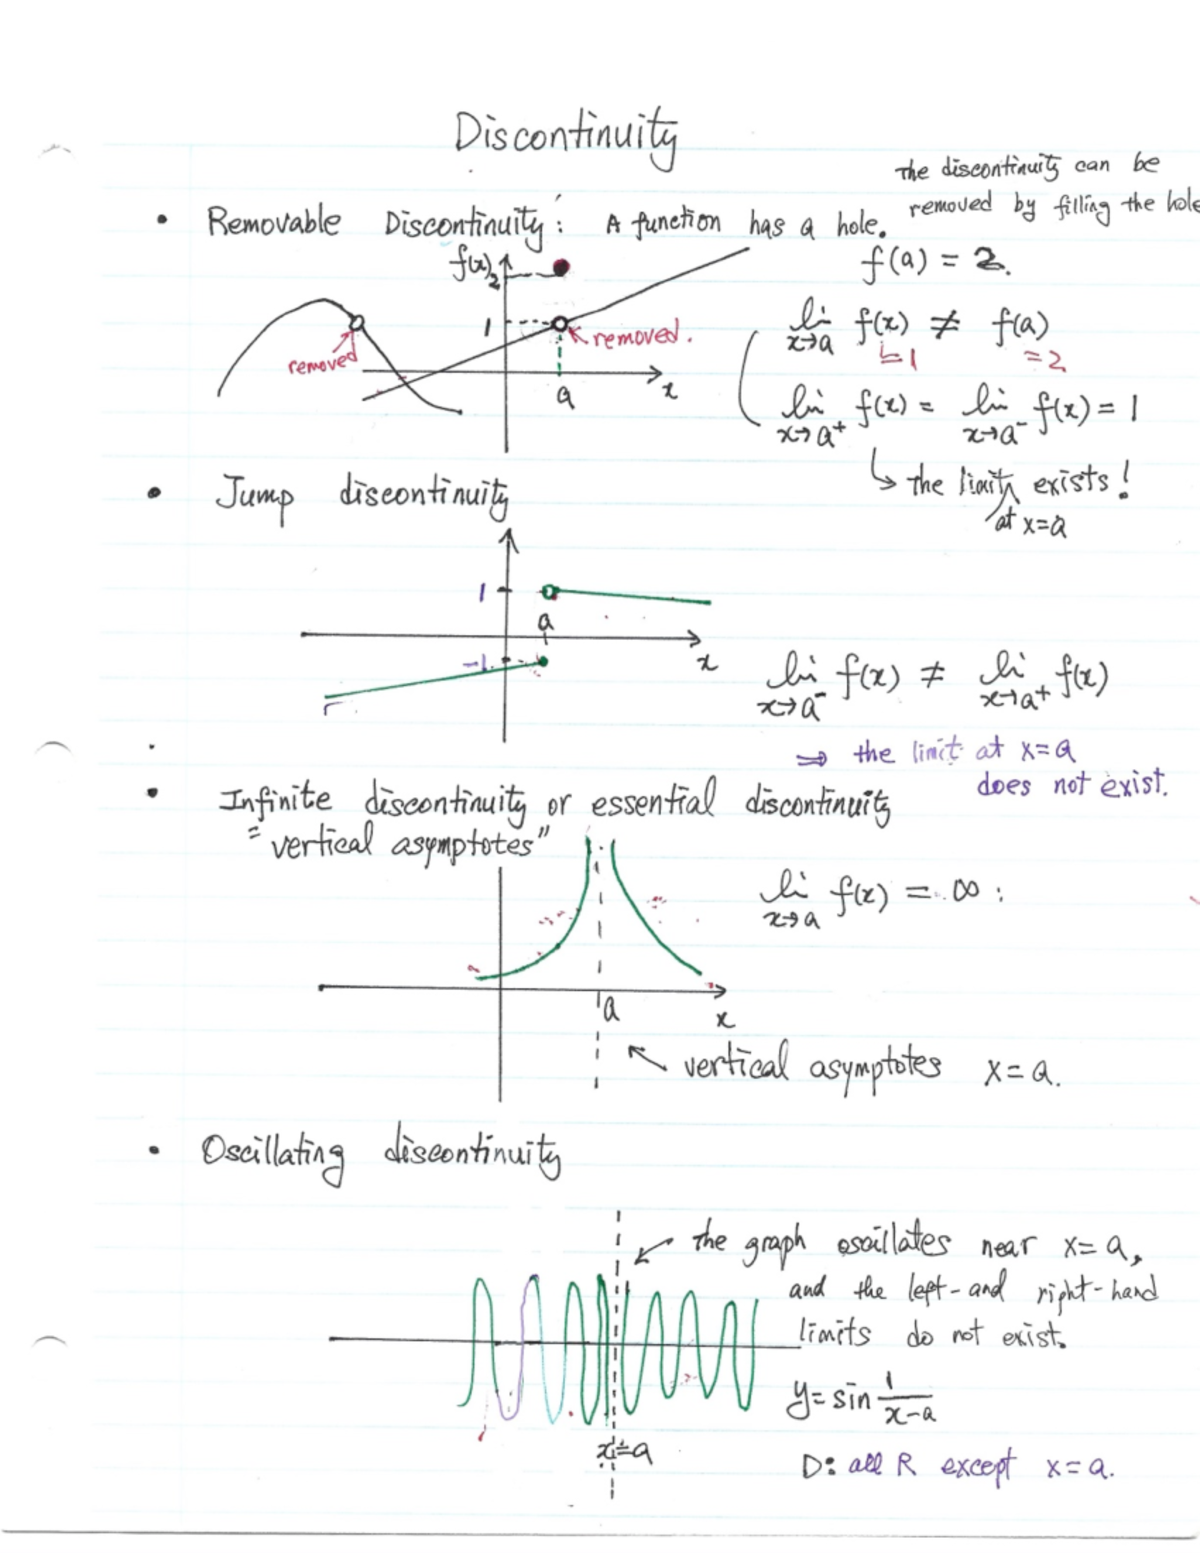 Discontinuity
the discontinuity can be
removed by filling the hole
• Removable Discontinuity: A function has a hole.
f(x)
2
1
removed
removed.
a
x
f(a) = 2.
lim x→a f(x) ≠ f(a)
=1 =2
lim x→a⁺ f(x) = lim x→a⁻ f(x) = 1
↳ the limit exists!
at x=a
• Jump discontinuity
1
a
-1
x
lim x→a⁻ f(x) ≠ lim x→a⁺ f(x)
⇒ the limit at x=a
does not exist.
• Infinite discontinuity or essential discontinuity
= "vertical asymptotes"
lim x→a f(x) = ∞ :
a
x
vertical asymptotes x=a.
• Oscillating discontinuity
the graph oscillates near x=a,
and the left-and right-hand
limits do not exist.
y= sin 1/(x-a)
x=a
D: all R except x=a.